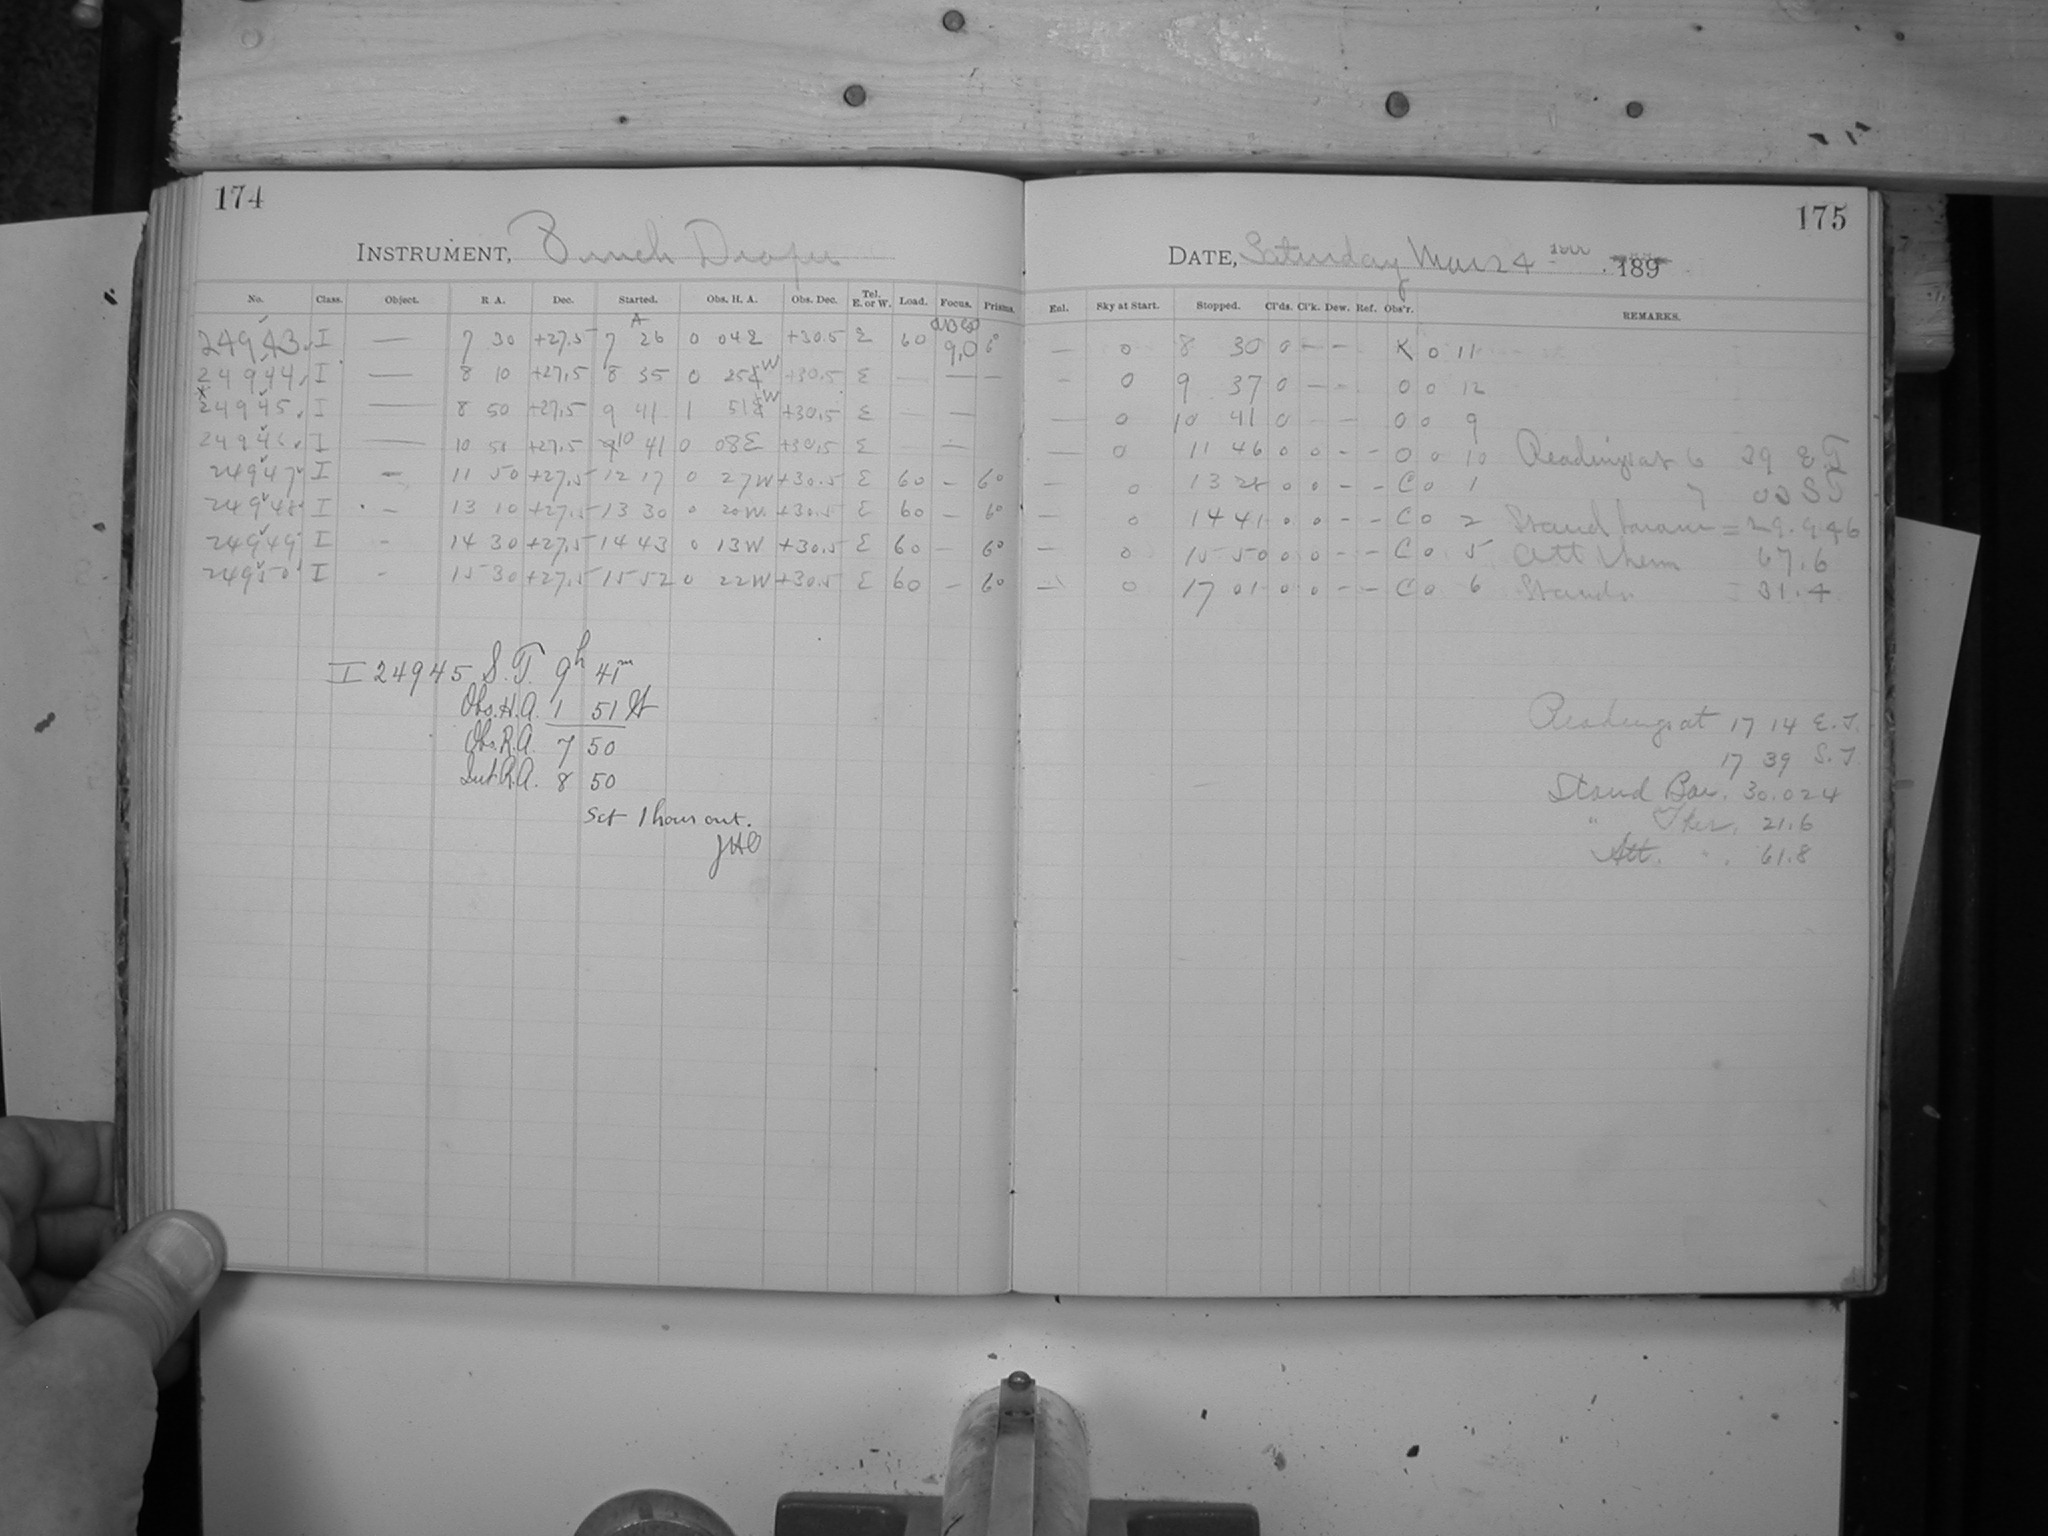 174
INSTRUMENT, 8 inch Draper
No. Class. Object. R A. Dec. Started. Obs. H. A. Obs. Dec. Tel. E. or W. Load. Focus. Prisms.
24943 I — 7 30 +27.5 7 26 0 04 E +30.5 E 60 9.0 6°
24944 I — 8 10 +27.5 8 35 0 25 W +30.5 E — — —
24945 I — 8 50 +27.5 9 41 1 51 W +30.5 E — —
24946 I — 10 51 +27.5 10 41 0 08 E +30.5 E —
24947 I — 11 50 +27.5 12 17 0 27 W +30.5 E 60 — 6°
24948 I — 13 10 +27.5 13 30 0 20 W +30.5 E 60 — 6°
24949 I - 14 30 +27.5 14 43 0 13 W +30.5 E 60 — 6°
24950 I - 15 30 +27.5 15 52 0 22 W +30.5 E 60 — 6°
I 24945 S.T. 9h 41m
Obs. H.A. 1 51 W
Obs. R.A. 7 50
Int. R.A. 8 50
Set 1 hour out.
JHO
175
DATE, Saturday Mar 4 189
Enl. Sky at Start. Stopped. Cl'ds. Cl'k. Dew. Ref. Obs'r. REMARKS.
— 0 8 30 0 — — K 0 11
— 0 9 37 0 — — O 0 12
— 0 10 41 0 — O 0 9
— 0 11 46 0 0 - - O 0 10 Readings at 6 39 E.T
— 0 13 28 0 0 - - C 0 1 7 00 S T
— 0 14 41 0 0 - - C 0 2 Stand barom = 29.946
— 0 15 50 0 0 - - C 0 5 Att therm 67.6
— 0 17 01 0 0 - - C 0 6 Stand = 31.4
Readings at 17 14 E.T.
17 39 S.T.
Stand Bar. 30.024
" Ther. 21.6
Att. " . 61.8